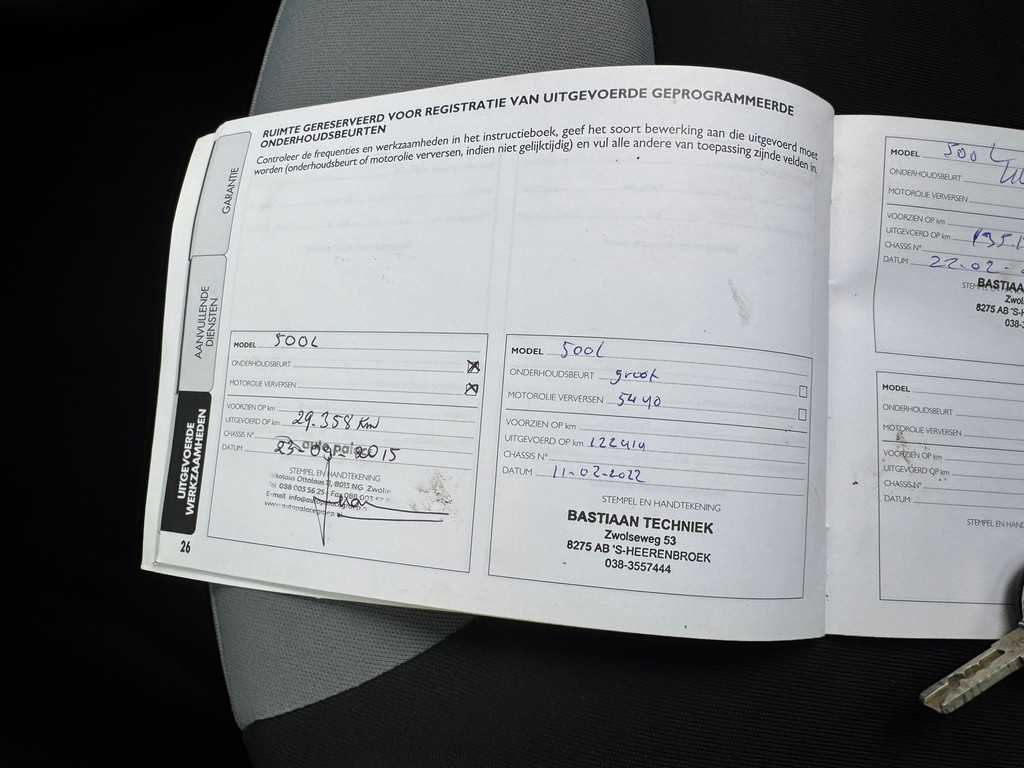 RUIMTE GERESERVEERD VOOR REGISTRATIE VAN UITGEVOERDE GEPROGRAMMEERDE
ONDERHOUDSBEURTEN
Controleer de frequenties en werkzaamheden in het instructieboek, geef het soort bewerking aan die uitgevoerd moet
worden (onderhoudsbeurt of motorolie verversen, indien niet gelijktijdig) en vul alle andere van toepassing zijnde velden in.
GARANTIE
AANVULLENDE
DIENSTEN
UITGEVOERDE
WERKZAAMHEDEN
26
MODEL 500L
ONDERHOUDSBEURT
MOTOROLIE VERVERSEN
VOORZIEN OP km
UITGEVOERD OP km 29.358 Km
CHASSIS N°
DATUM 23-09-2015
STEMPEL EN HANDTEKENING
8013 NG Zwolle
038 003 56 25
E-mail
MODEL 500L
ONDERHOUDSBEURT groot
MOTOROLIE VERVERSEN 5W40
VOORZIEN OP km
UITGEVOERD OP km 122414
CHASSIS N°
DATUM 11-02-2022
STEMPEL EN HANDTEKENING
BASTIAAN TECHNIEK
Zwolseweg 53
8275 AB 'S-HEERENBROEK
038-3557444
MODEL 500L
ONDERHOUDSBEURT
MOTOROLIE VERVERSEN
VOORZIEN OP km
UITGEVOERD OP km 135.1
CHASSIS N°
DATUM 22-02-
BASTIAA
8275 AB 'S-H
038-3
MODEL
ONDERHOUDSBEURT
MOTOROLIE VERVERSEN
VOORZIEN OP km
UITGEVOERD OP km
CHASSIS N°
DATUM
STEMPEL EN HAND